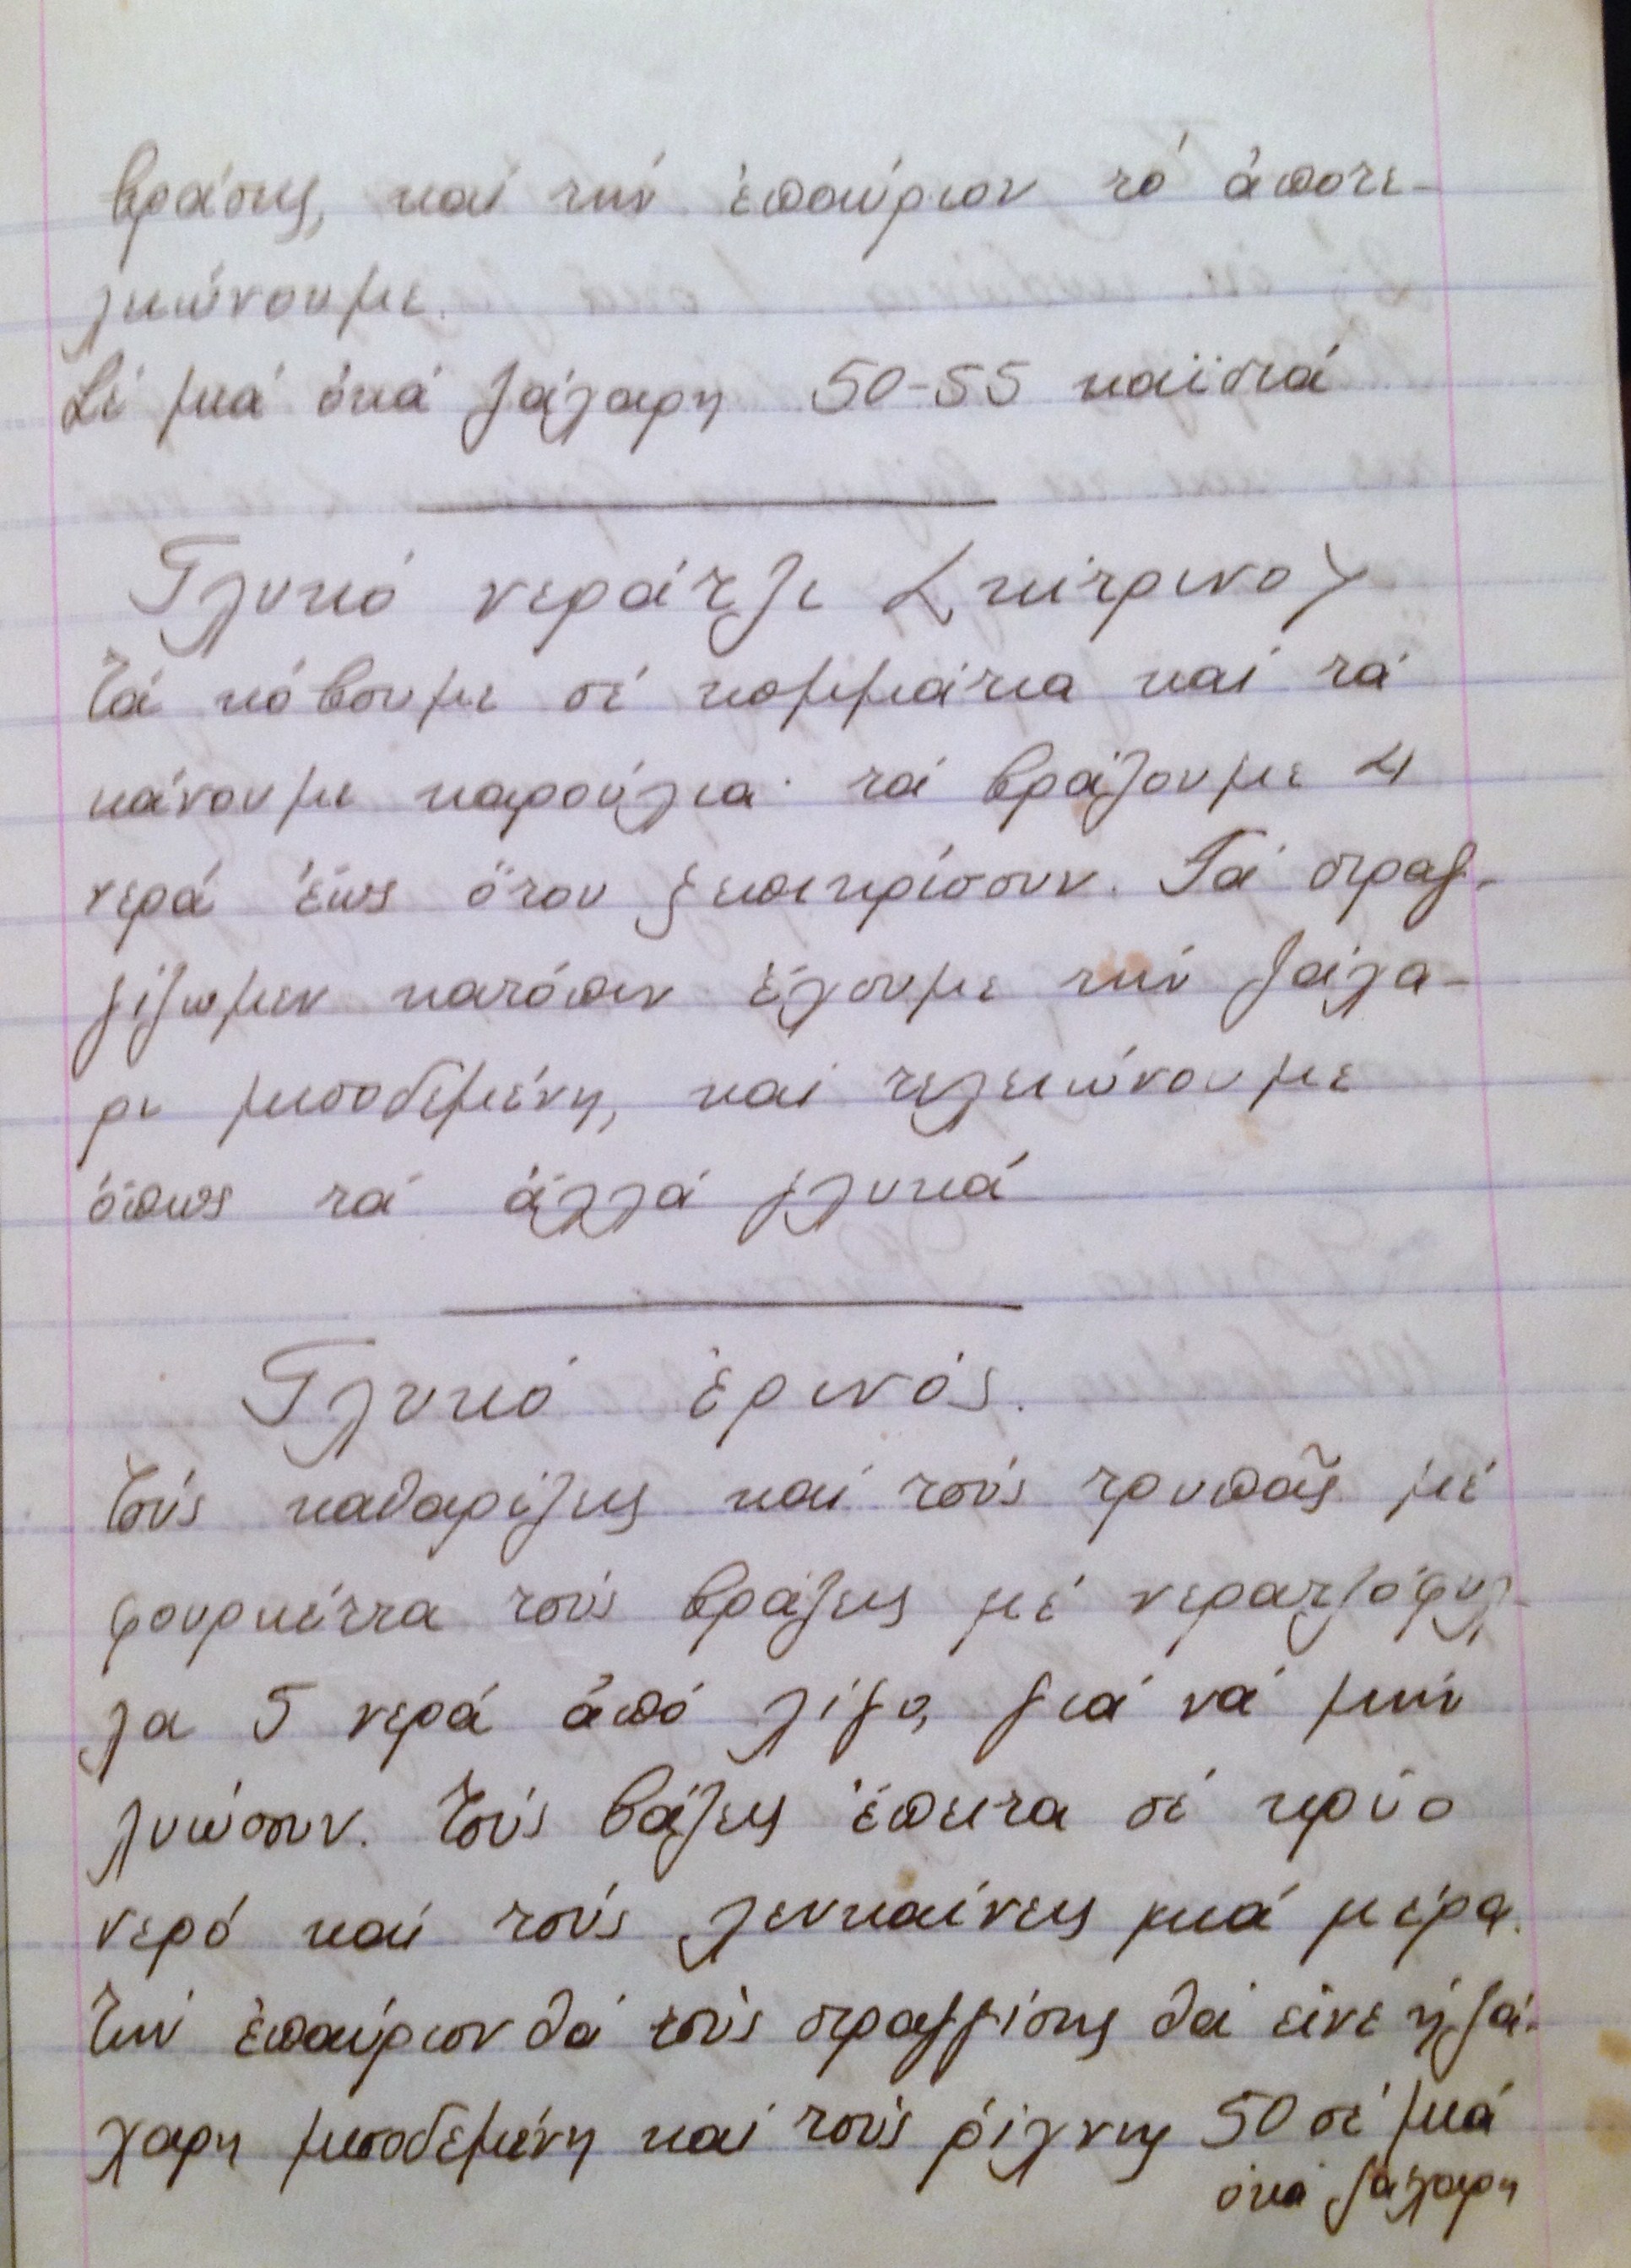 βράσης, καί τήν ἐπαύριον τό ἀποτε-
λειώνουμε.
Σέ μιά ὀκά ζάχαρη 50-55 καϊσιά
Γλυκό νεράτζι <κίτρινο>
Τά κόβουμε σέ κομμάτια καί τά
κάνουμε καρούλια· τά βράζουμε 4
νερά ἕως ὅτου ξεπικρίσουν. Τά στραγ-
γίζωμεν κατόπιν ἔχουμε τήν ζάχα-
ρι μισοδεμένη, καί τελειώνουμε
ὅπως τά ἄλλά γλυκά
Γλυκό ἐρινός.
Τούς καθαρίζεις καί τούς τρυπᾶς μέ
φουρκέττα τούς βράζεις μέ νερατζόφυλ-
λα 5 νερά ἀπό λίγο, γιά νά μήν
λυώσουν. Τούς βάζεις ἔπειτα σέ κρύο
νερό καί τούς λευκαίνεις μιά μέρα.
Τήν ἐπαύριον θά τούς στραγγίσης θά εἶνε ἡ ζά-
χαρη μισοδεμένη καί τούς ρίχνεις 50 σέ μιά
ὀκά ζάχαρη